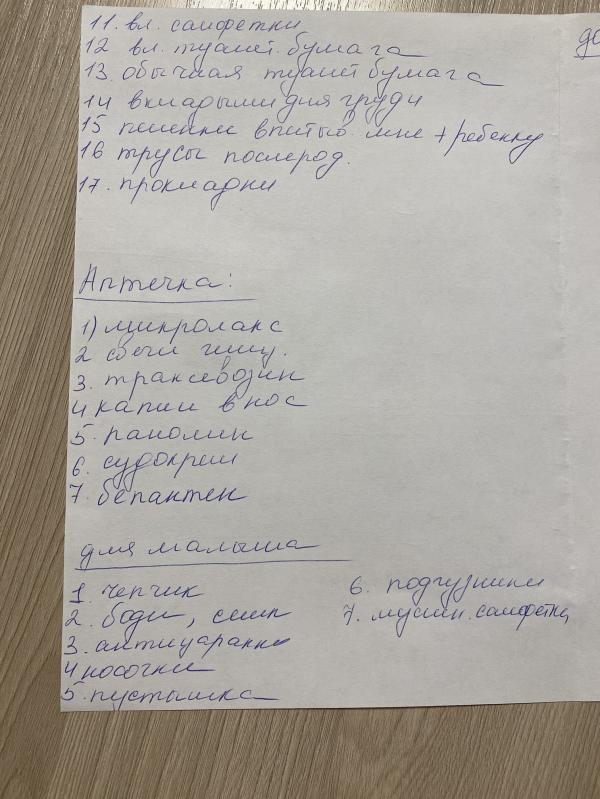 11. вл. салфетки
12 вл. туалет. бумага
13. обычная туалет бумага
14 вкладыши для груди
15 пеленки впитыв. мне + ребенку
16 трусы послерод.
17. прокладки
до
Аптечка:
1) микролакс
2 свечи
3. траксевозин
4 капли в нос
5. ланолин
6. судокрем
7. бепантен
для малыша
1. чепчик
2. боди, слип
3. антицарапки
4 носочки
5. пустышка
6. подгузники
7. муслин. салфетки